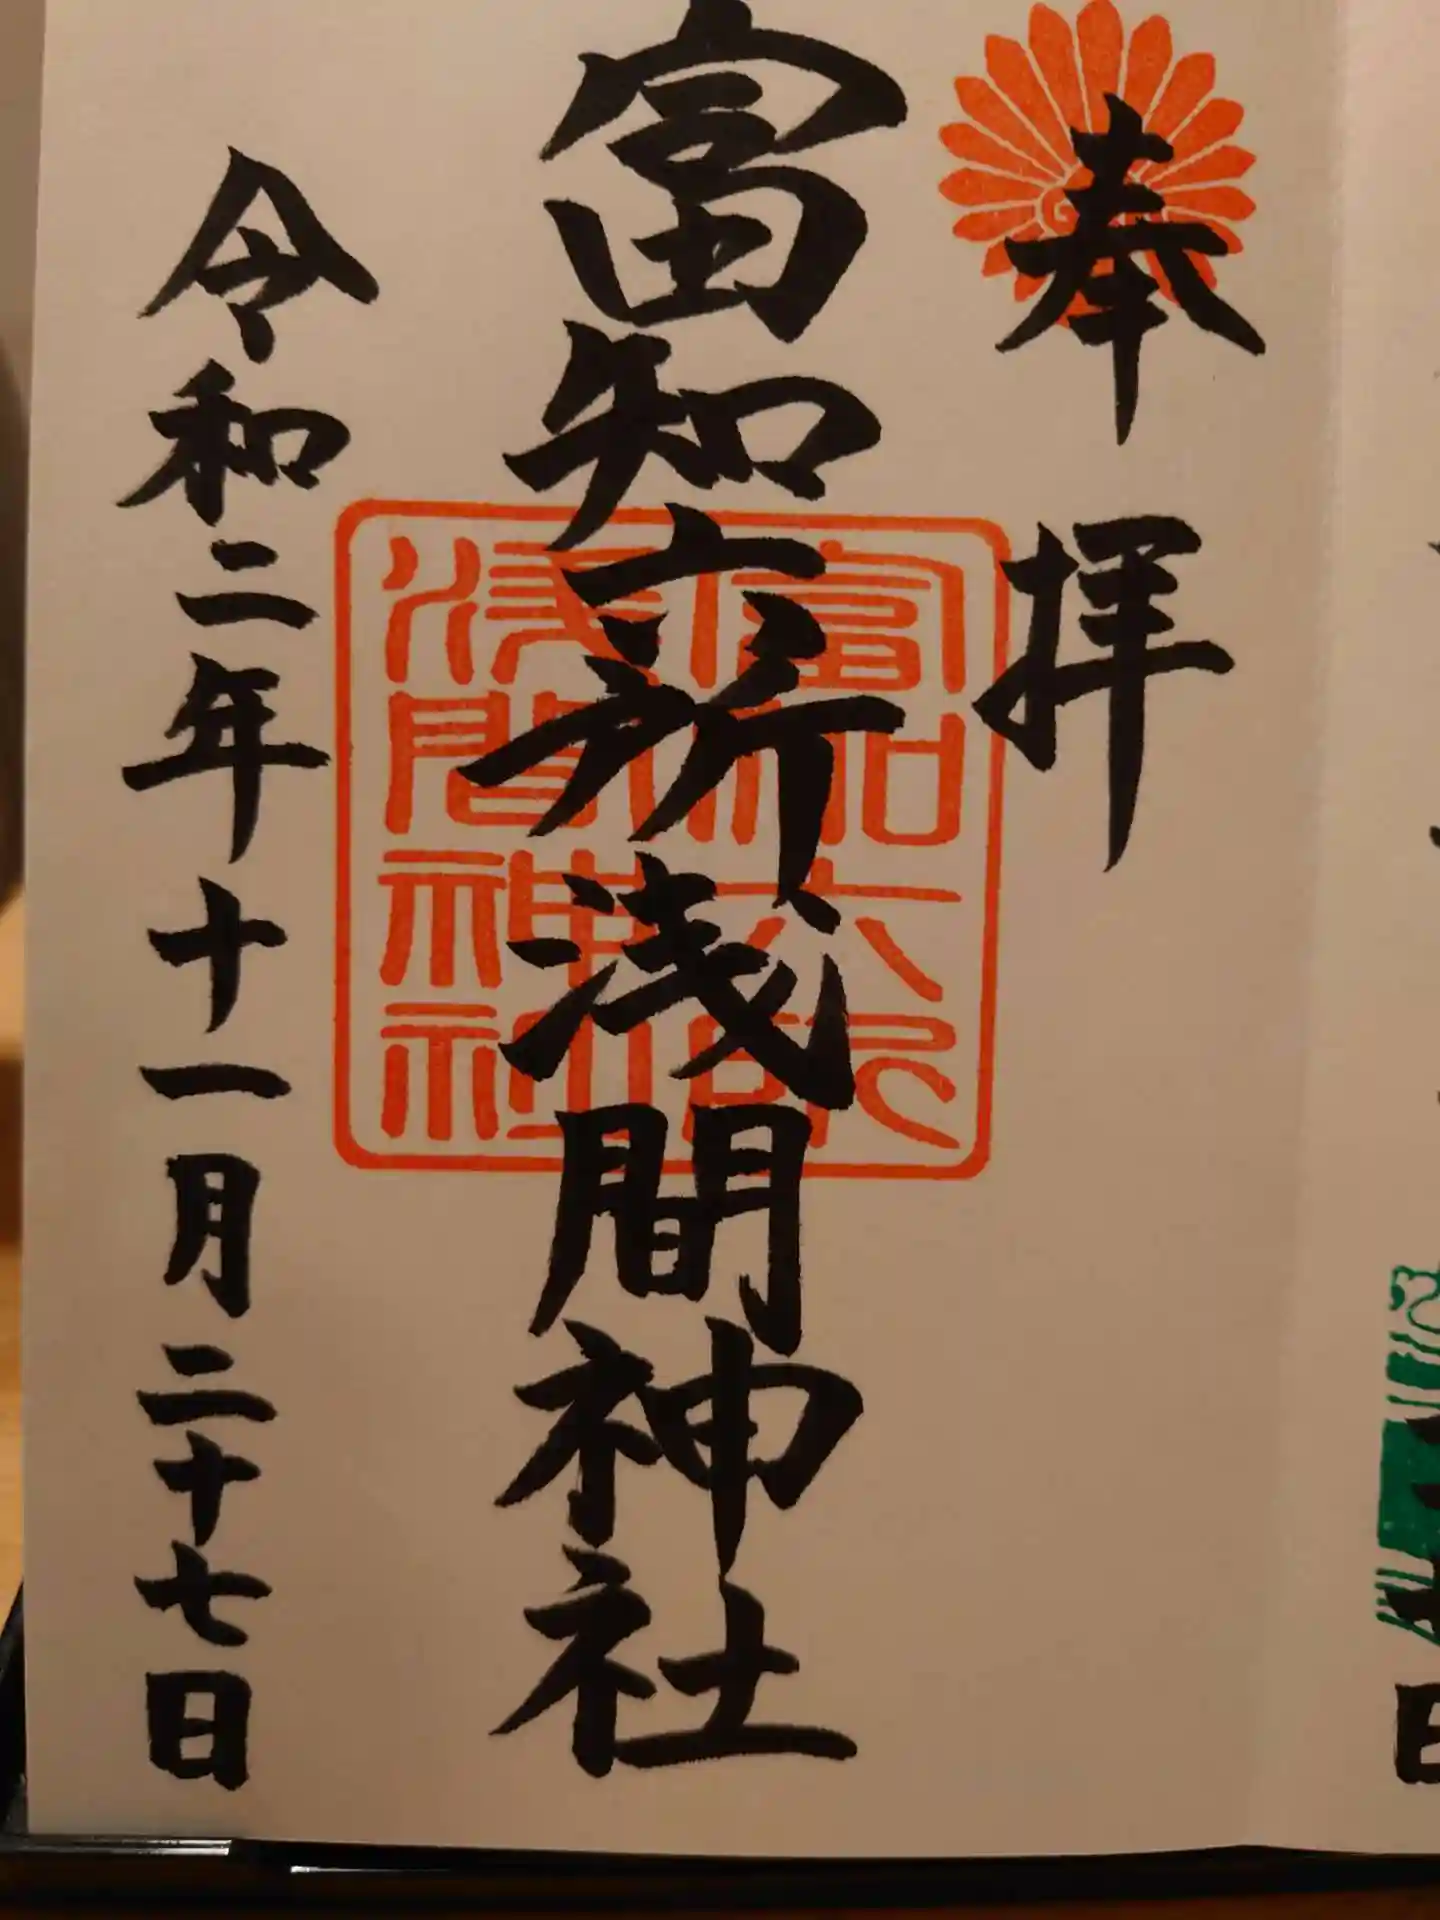 奉拝
富知六所浅間神社
富知六所
浅間神社
令和二年十一月二十七日
日